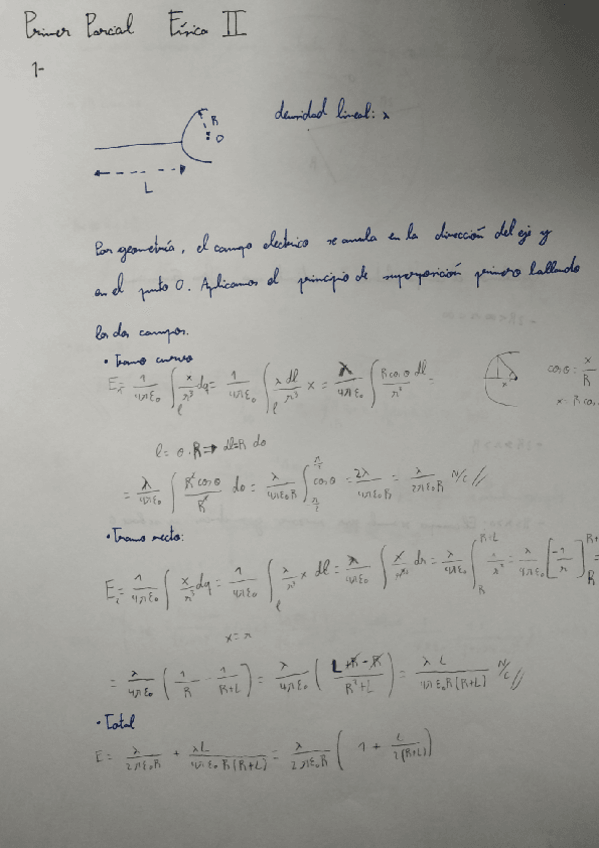 Primer Parcial Física II
1-
R
O
L
densidad lineal: λ
Por geometría, el campo electrico se anula en la dirección del eje y
en el punto O. Aplicamos el principio de superposición primero hallando
los dos campos.
• Tramo curvo
E_x = 1/(4πε₀) ∫_l x/r³ dq = 1/(4πε₀) ∫_l λ dl/r³ x = λ/(4πε₀) ∫ R cosθ dl/r³ =
cosθ = x/R
x = R cos
l = θ·R ⇒ dl = R dθ
= λ/(4πε₀) ∫ R² cosθ/R³ dθ = λ/(4πε₀R) ∫ cosθ = 2λ/(4πε₀R) = λ/(2πε₀R) N/C //
• Tramo recto:
E_x = 1/(4πε₀) ∫ x/r³ dq = 1/(4πε₀) ∫_l λ/r³ x dl = λ/(4πε₀) ∫ x/r³ dr = λ/(4πε₀) ∫_R^{R+L} 1/r² = λ/(4πε₀) [-1/r]_R^{R+L} =
x = r
= λ/(4πε₀) (1/R - 1/(R+L)) = λ/(4πε₀) ((L+R-R)/(R²+L)) = λL/(4πε₀R(R+L)) N/C //
• Total
E = λ/(2πε₀R) + λL/(4πε₀R(R+L)) = λ/(2πε₀R) (1 + L/(2(R+L)))